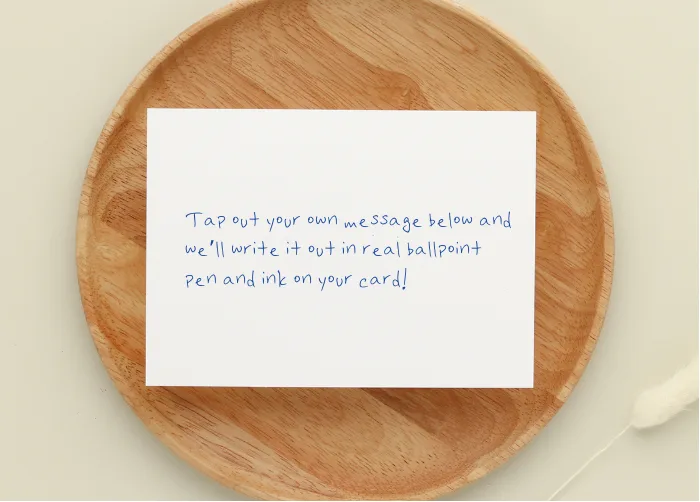 Tap out your own message below and
we'll write it out in real ballpoint
pen and ink on your card!